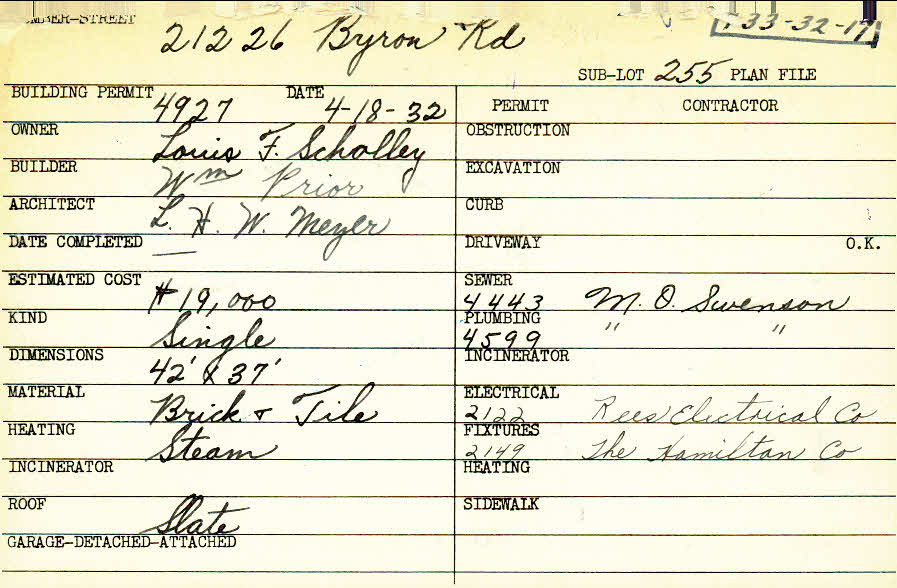 NUMBER-STREET
21226 Byron Rd
733-32-17
SUB-LOT 255 PLAN FILE
BUILDING PERMIT 4927 DATE 4-18-32
PERMIT CONTRACTOR
OWNER Louis F. Scholley
OBSTRUCTION
BUILDER Wm Prior
EXCAVATION
ARCHITECT L. H. W. Meyer
CURB
DATE COMPLETED —
DRIVEWAY O.K.
ESTIMATED COST $19,000
SEWER 4443 M. O. Swenson
KIND Single
PLUMBING 4599 " "
DIMENSIONS 42' x 37'
INCINERATOR
MATERIAL Brick & Tile
ELECTRICAL 2122 Rees Electrical Co
HEATING Steam
FIXTURES 2149 The Hamilton Co
INCINERATOR
HEATING
ROOF Slate
SIDEWALK
GARAGE-DETACHED-ATTACHED